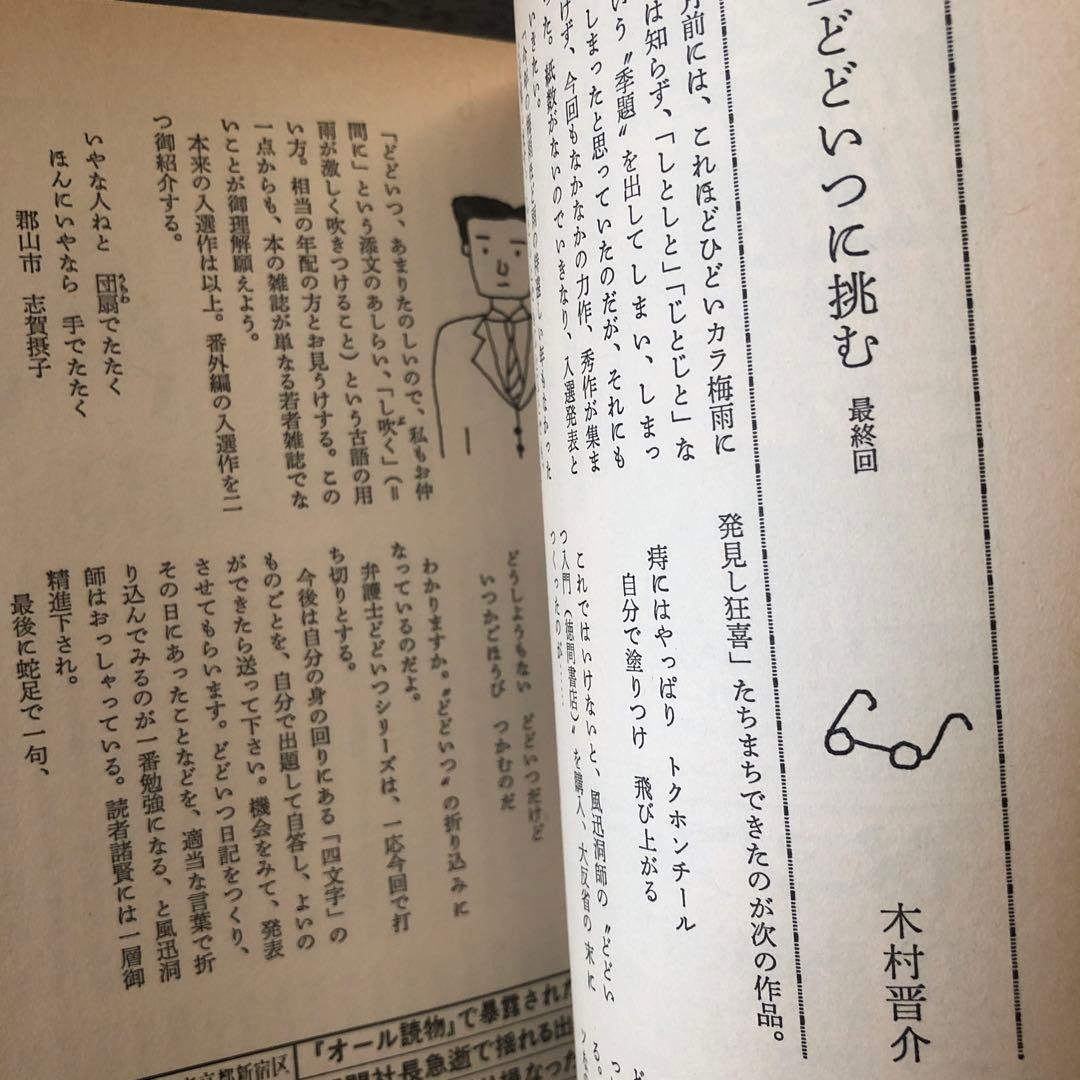 どどいつに挑む 最終回
木村晋介
月前には、これほどひどいカラ梅雨に
は知らず、「しとしと」「じとじと」な
いう〝季題〟を出してしまい、しまっ
しまったと思っていたのだが、それにも
けず、今回もなかなかの力作、秀作が集ま
った。紙数がないのでいきなり、入選発表と
いきたい。
発見し狂喜」たちまちできたのが次の作品。
痔にはやっぱり トクホンチール
自分で塗りつけ 飛び上がる
これではいけないと、風迅洞師の〝どどい
つ入門(徳間書店)〟を購入、大反省の末に
つくったのが……
「どどいつ、あまりたのしいので、私もお仲
間に」という添文のあしらい、「し吹く」(＝
雨が激しく吹きつけること)という古語の用
い方。相当の年配の方とお見うけする。この
一点からも、本の雑誌が単なる若者雑誌でな
いことが御理解願えよう。
本来の入選作は以上。番外編の入選作を二
つ御紹介する。
いやな人ねと 団扇でたたく
うちわ
ほんにいやなら 手でたたく
郡山市 志賀摂子
どうしようもない どどいつだけど
いつかごほうび つかむのだ
わかりますか。〝どどいつ〟の折り込みに
なっているのだよ。
弁護士どどいつシリーズは、一応今回で打
ち切りとする。
今後は自分の身の回りにある「四文字」の
ものごとを、自分で出題して自答し、よいの
ができたら送って下さい。機会をみて、発表
させてもらいます。どどいつ日記をつくり、
その日にあったことなどを、適当な言葉で折
り込んでみるのが一番勉強になる、と風迅洞
師はおっしゃっている。読者諸賢には一層御
精進下され。
最後に蛇足で一句、
『オール読物』で暴露された
社長急逝で揺れる出
東京都新宿区